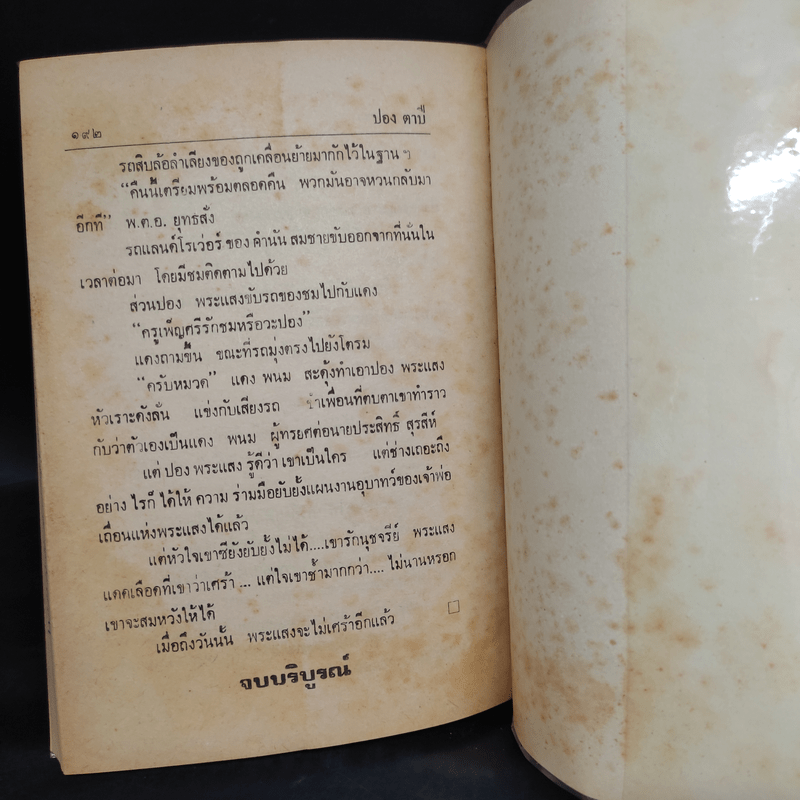 ๑๙๒
ปอง ตาปี
รถสิบล้อลำเลียงของถูกเคลื่อนย้ายมากักไว้ในฐาน ๆ
“คืนนี้เตรียมพร้อมตลอดคืน พวกมันอาจหวนกลับมา
อีกที” พ.ต.อ. ยุทธสั่ง
รถแลนด์โรเว่อร์ ของ กำนัน สมชายขับออกจากที่นั่นใน
เวลาต่อมา โดยมีชมติดตามไปด้วย
ส่วนปอง พระแสงขับรถของชมไปกับแดง
“ครูเพ็ญศรีรักชมหรือวะปอง”
แดงถามขึ้น ขณะที่รถมุ่งตรงไปยังโตรม
“ครับหมวด” แดง พนม สะดุ้งทำเอาปอง พระแสง
หัวเราะดังลั่น แข่งกับเสียงรถ เพื่อนที่ตบตาเขาทำราว
กับว่าตัวเองเป็นแดง พนม ผู้ทรยศต่อนายประสิทธิ์ สุรสีห์
แต่ ปอง พระแสง รู้ดีว่า เขาเป็นใคร แต่ช่างเถอะถึง
อย่าง ไรก็ ได้ให้ ความ ร่วมมือยับยั้งแผนงานอุบาทว์ของเจ้าพ่อ
เถื่อนแห่งพระแสงได้แล้ว
แต่หัวใจเขาซียังยับยั้งไม่ได้....เขารักนุชจรีย์ พระแสง
แดดเลือดที่เขาว่าเศร้า ... แต่ใจเขาช้ำมากกว่า.... ไม่นานหรอก
เขาจะสมหวังให้ได้
เมื่อถึงวันนั้น พระแสงจะไม่เศร้าอีกแล้ว
จบบริบูรณ์